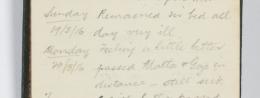 Sunday Remained in bed all
19/3/16 day very ill
Monday Feeling a little better
20/3/16 passed Malta & Gozo in
distance – still sick